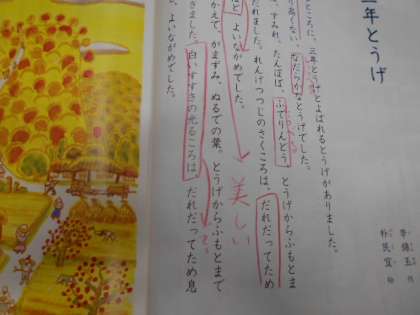 三年とうげ
李錦玉 作
朴民宜 絵
ところに、三年とうげとよばれるとうげがありました。
り高くない、なだらかなとうげでした。
すみれ、たんぽぽ、ふでりんどう。とうげからふもとま
だれました。れんげつつじのさくころは、だれだってため
ほど、よいながめでした。
美しい
かえで、がまずみ、ぬるでの葉。とうげからふもとまで
きました。白いすすきの光るころは、だれだってため息
、よいながめでした。